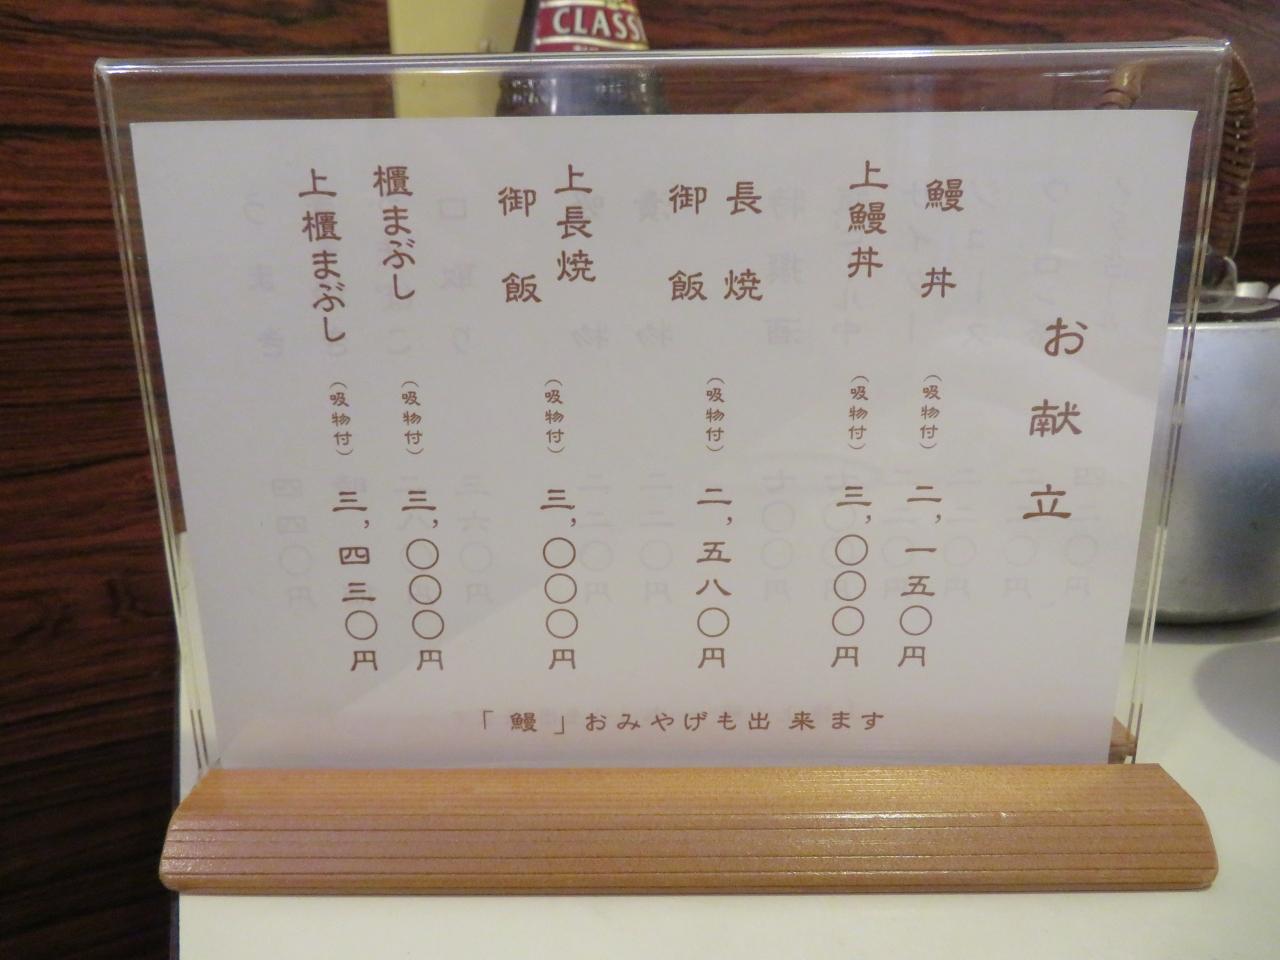 お献立
鰻丼 （吸物付） 二,一五〇円
上鰻丼 （吸物付） 三,〇〇〇円
長焼
御飯 （吸物付） 二,五八〇円
上長焼
御飯 （吸物付） 三,〇〇〇円
櫃まぶし （吸物付） 三,〇〇〇円
上櫃まぶし （吸物付） 三,四三〇円
「鰻」おみやげも出来ます
CLASS